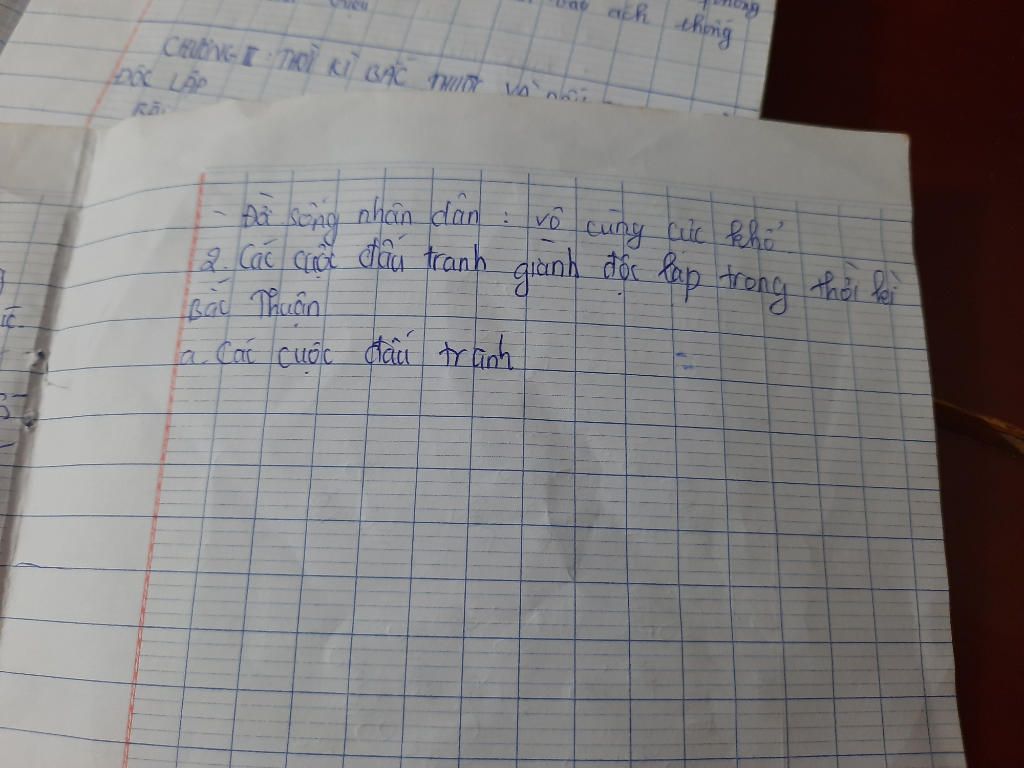 ách thống
CHƯƠNG II: THỜI KÌ BẮC THUỘC VÀ
ĐỘC LẬP
- Đờ sống nhân dân : vô cùng cực khổ
2. Các cuộc đấu tranh giành độc lập trong thời kì
Bắc Thuộn
a. Các cuộc đấu tranh